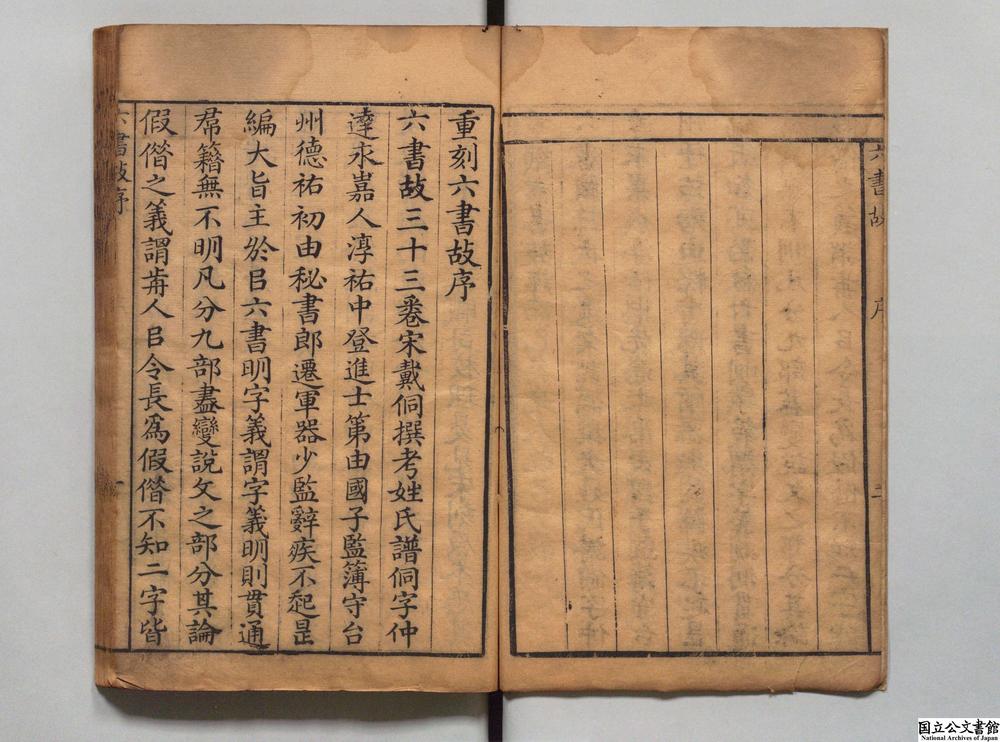 六書故 序 二
重刻六書故序
六書故三十三卷宋戴侗撰考姓氏譜侗字仲
達永嘉人淳祐中登進士第由國子監簿守台
州德祐初由秘書郎遷軍器少監辭疾不起是
編大旨主於㠯六書明字義謂字義明則貫通
羣籍無不明凡分九部盡變說文之部分其論
假借之義謂歬人㠯令長爲假借不知二字皆
六書故序 一
国立公文書館
National Archives of Japan